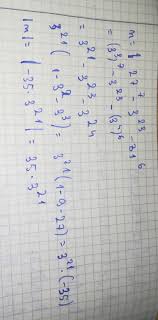 m = 27⁷ - 3²³ - 81⁶
= (3³)⁷ - 3²³ - (3⁴)⁶
= 3²¹ - 3²³ - 3²⁴
3²¹ (1 - 3² - 3³) = 3²¹ (1 - 9 - 27) = 3²¹ · (-35)
|m| = |-35 · 3²¹| = 35 · 3²¹